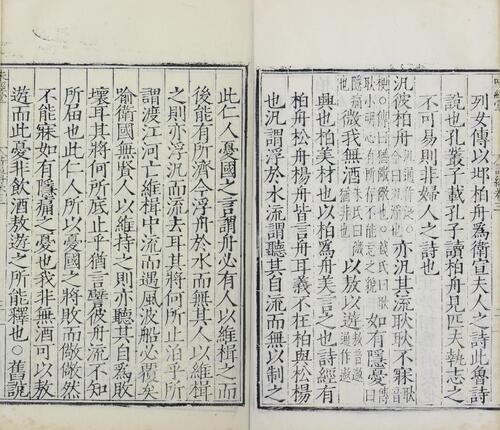 列女傳以邶柏舟爲衛宣夫人之詩此魯詩
說也孔叢子載孔子讀柏舟見匹夫執志之
不可易則非婦人之詩也
汎彼柏舟亦汎其流耿耿不寐耿
梗○傳曰猶儆儆也○錢氏曰耿
耿小明心有所存不能忘之貌如有隱憂傳曰
隱痛也微我無酒朱氏曰微猶非也以敖以遊
興也柏美材也以柏爲舟美言之也詩經有
柏舟松舟楊舟皆言舟耳義不在柏與松楊
也汎謂浮於水流謂聽其自流而無以制之
此仁人憂國之言謂舟必有人以維楫之而
後能有所濟今浮舟於水而無其人以維楫
之則亦浮沉而流去耳其將何所止泊乎所
謂渡江河亡維楫中流而遇風波船必覆矣
喻衛國無賢人以維持之則亦聽其自爲敗
壞耳其將何所底止乎猶言譬彼舟流不知
所届也此仁人所以憂國之將敗而儆儆然
不能寐如有隱痛之憂也我非無酒可以敖
遊而此憂非飲酒敖遊之所能釋也○舊說